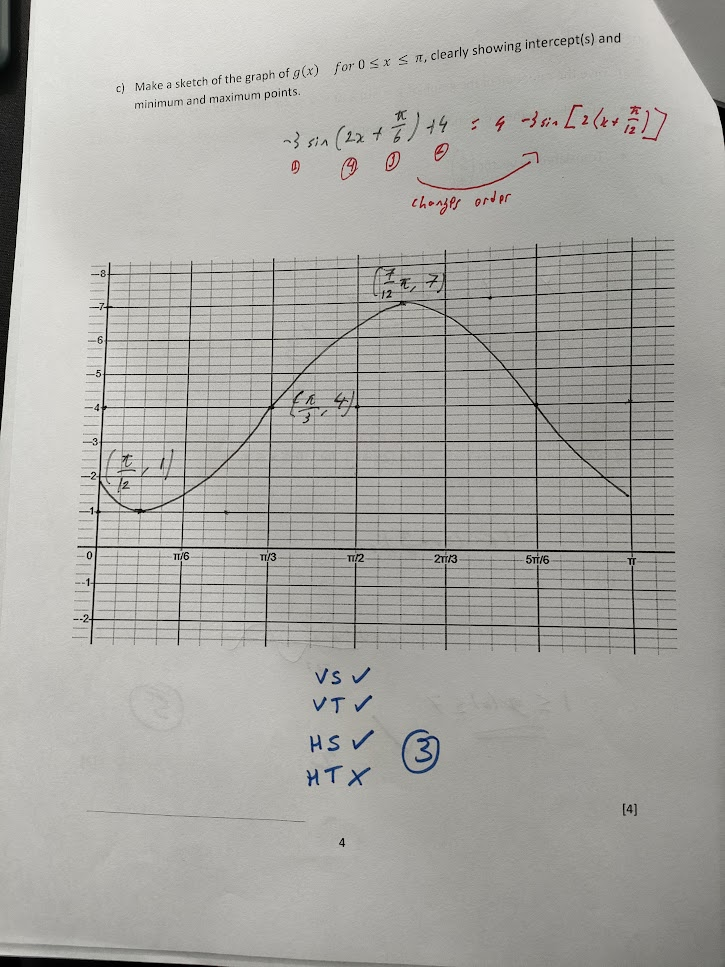 c) Make a sketch of the graph of g(x) for 0 ≤ x ≤ π, clearly showing intercept(s) and
minimum and maximum points.
-3 sin (2x + π/6) + 4 = 4 -3 sin [2(x + π/12)]
① ④ ③ ②
changes order
8
(7/12 π, 7)
7
6
5
4
(π/3, 4)
3
(π/12, 1)
2
1
0 π/6 π/3 π/2 2π/3 5π/6 π
-1
-2
VS ✓
VT ✓
HS ✓ ③
HT X
[4]
4